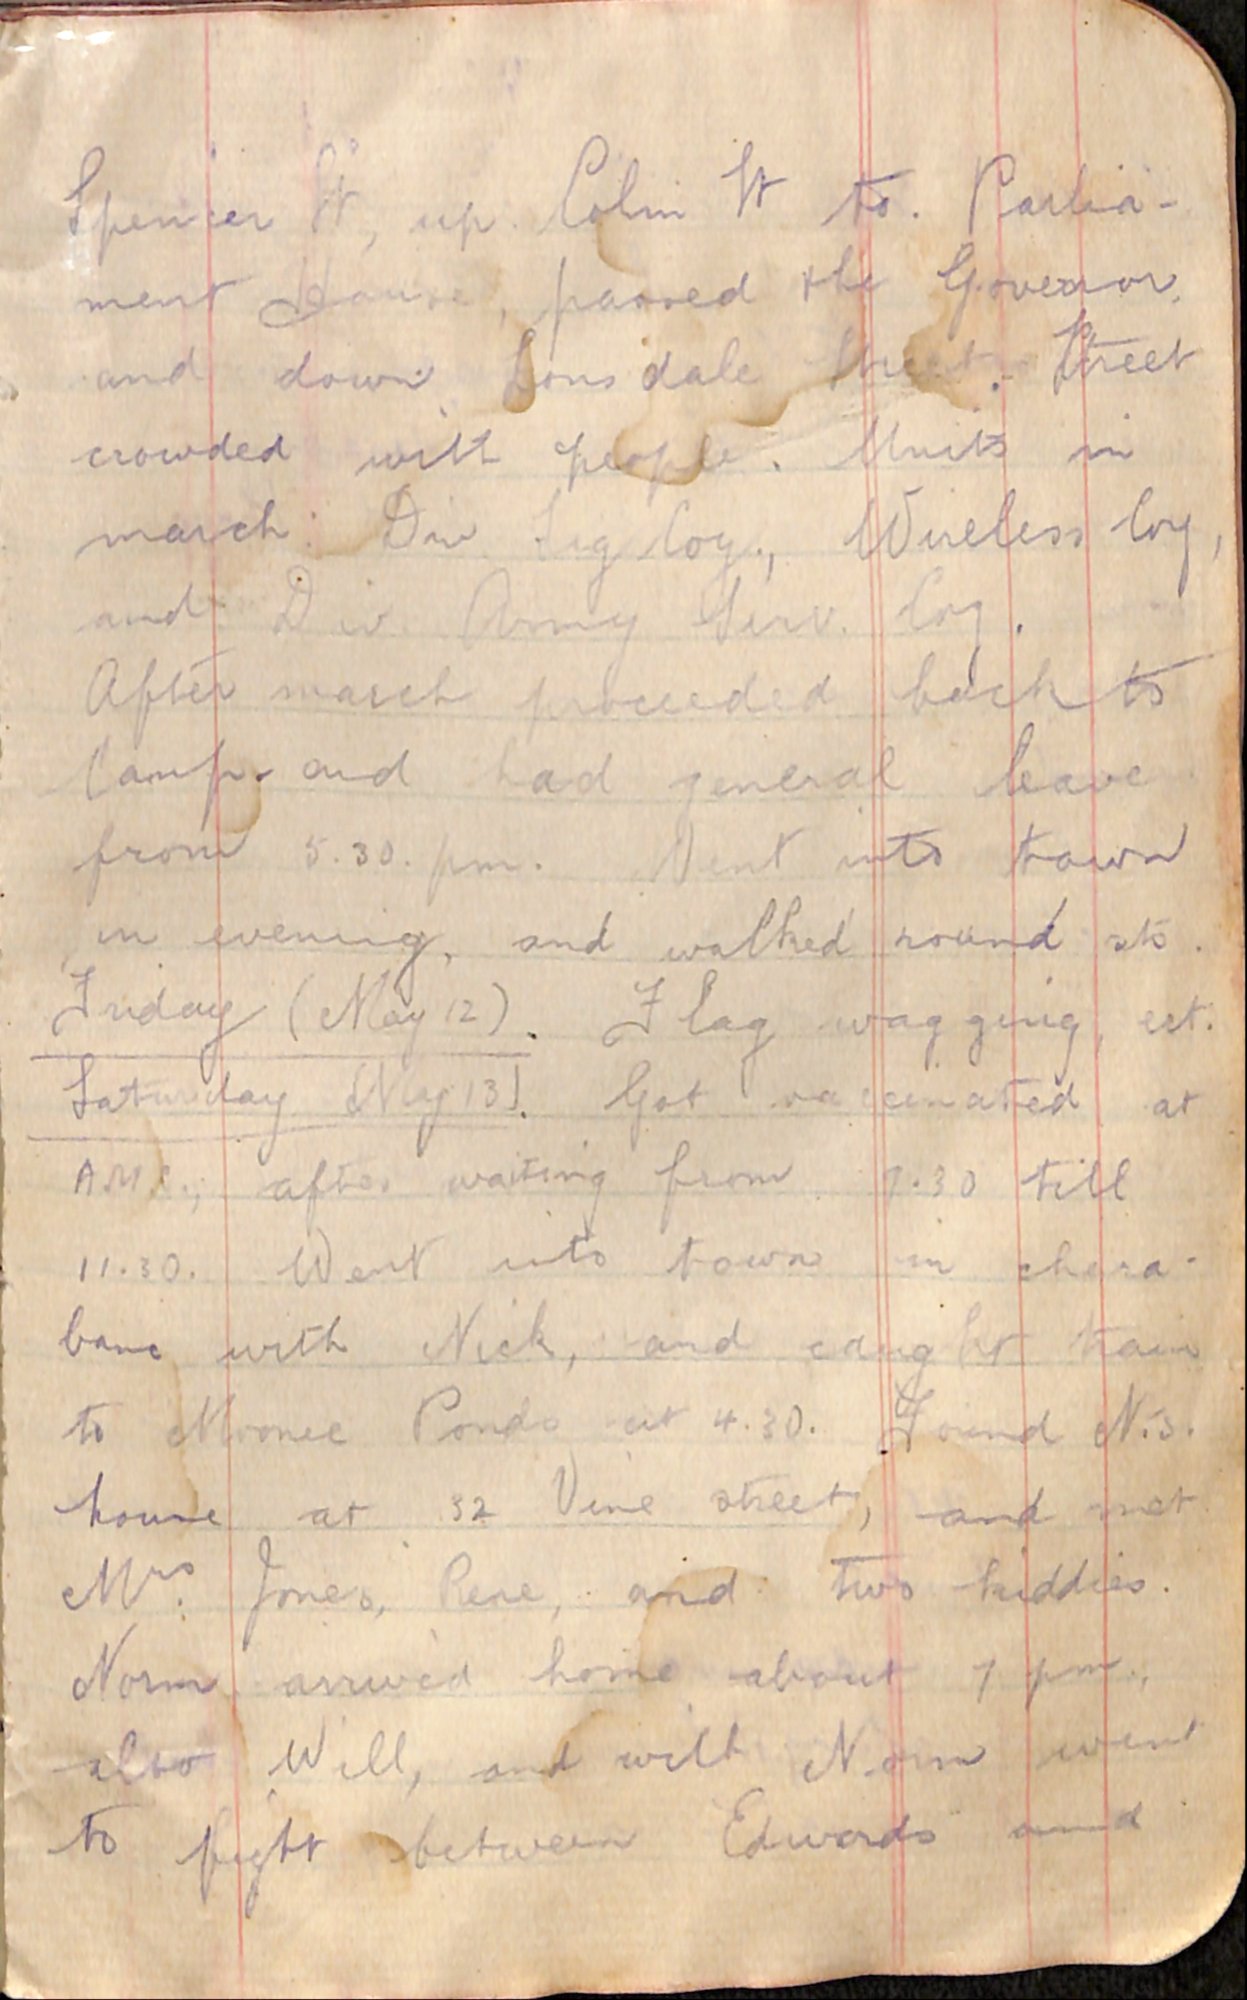 Spencer St, up Colin St to. Parlia-
ment House, passed the Governor,
and down Lonsdale Street. Street
crowded with people. Units in
march: Div Sig Coy., Wireless Coy,
and Div. Army Serv. Coy.
After march proceeded back to
Camp. and had general leave
from 5.30. pm. Went into town
in evening, and walked round sts.
Friday (May 12). Flag wagging, ect.
Saturday (May 13). Got vaccinated at
A.M.C., after waiting from 7.30 till
11.30. Went into town in chara-
banc with Nick, and caught train
to Moonee Ponds at 4.30. Found N.s.
house at 32 Vine street, and met
Mrs. Jones, Rene, and two kiddies.
Norm arrived home about 7 pm.,
also Will, and with Norm went
to fight between Edwards and